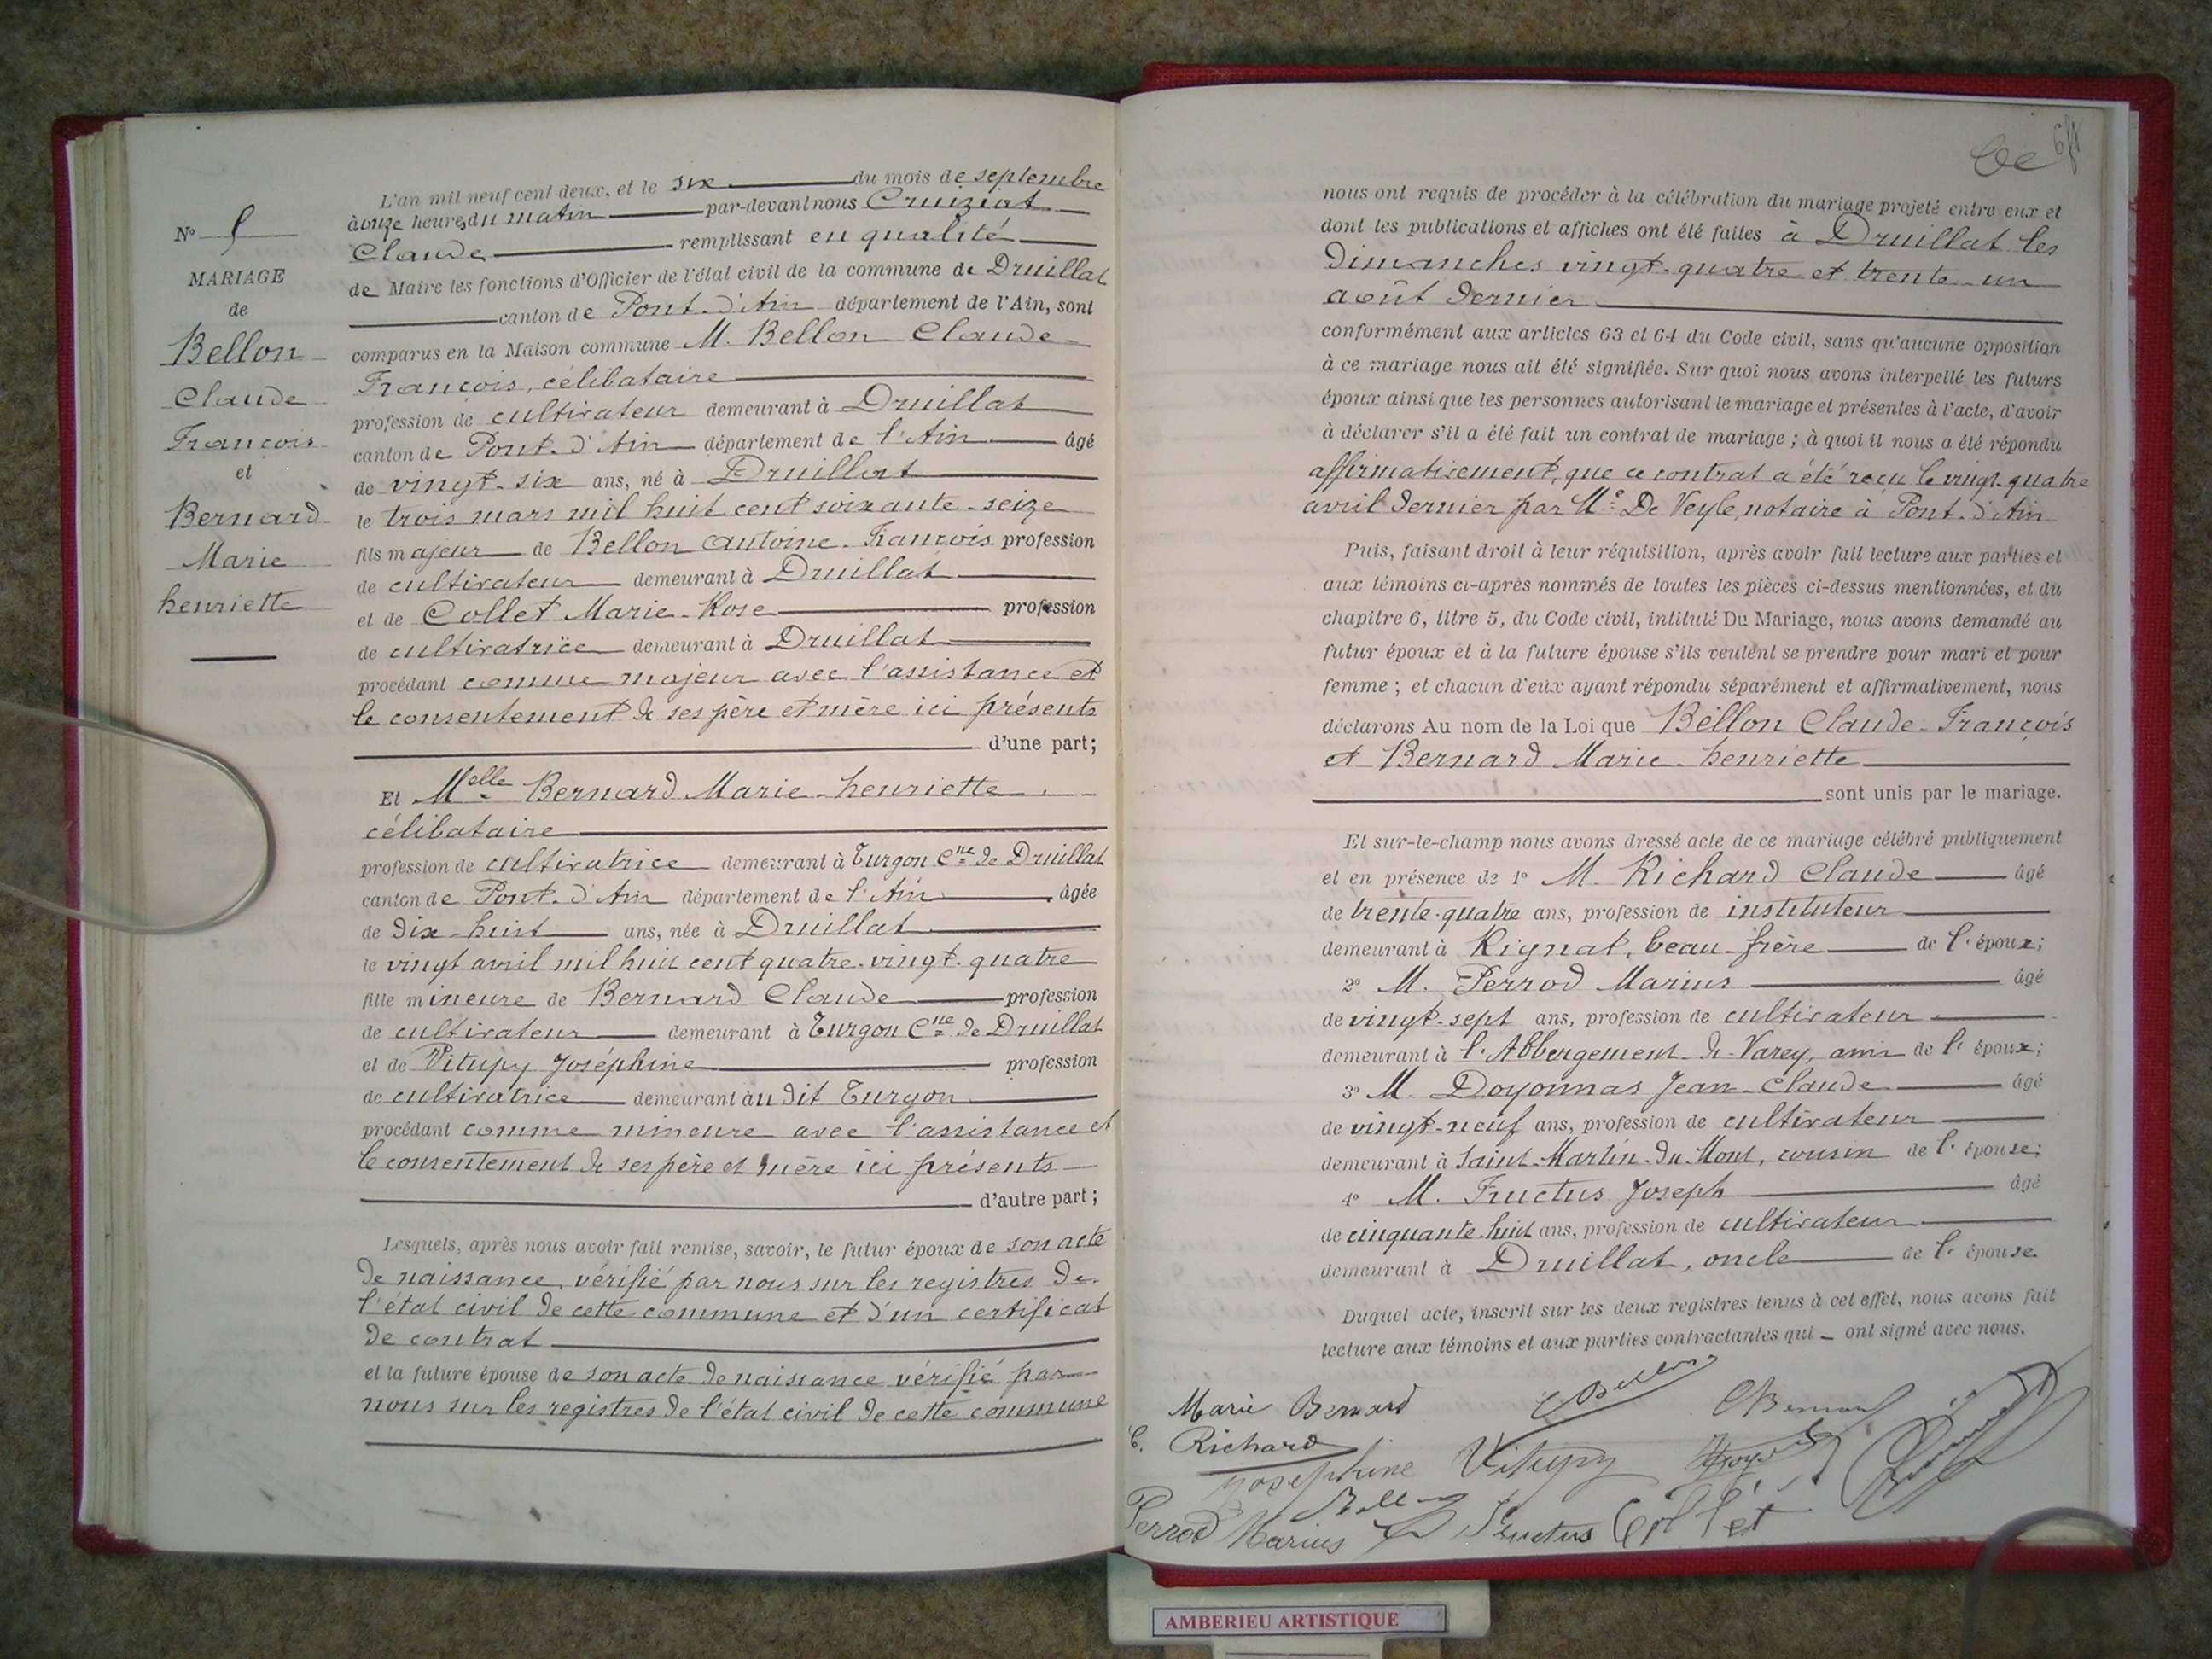 N° 5
MARIAGE
de
Bellon
Claude
François
et
Bernard
Marie
henriette
L'an mil neuf cent deux, et le six du mois de septembre
à onze heures du matin par-devant nous Cruiziat
Claude remplissant en qualité
de Maire les fonctions d'Officier de l'état civil de la commune de Druillat
canton de Pont-d'Ain département de l'Ain, sont
comparus en la Maison commune M. Bellon Claude-
François, célibataire
profession de cultivateur demeurant à Druillat
canton de Pont-d'Ain département de l'Ain âgé
de vingt-six ans, né à Druillat
le trois mars mil huit cent soixante-seize
fils majeur de Bellon Antoine-François profession
de cultivateur demeurant à Druillat
et de Collet Marie-Rose profession
de cultivatrice demeurant à Druillat
procédant comme majeur avec l'assistance et
le consentement de ses père et mère ici présents
d'une part;
Et Melle Bernard Marie-henriette
célibataire
profession de cultivatrice demeurant à Turgon Cne de Druillat
canton de Pont-d'Ain département de l'Ain âgée
de dix-huit ans, née à Druillat
le vingt avril mil huit cent quatre-vingt-quatre
fille mineure de Bernard Claude profession
de cultivateur demeurant à Turgon Cne de Druillat
et de Vitupy Joséphine profession
de cultivatrice demeurant au dit Turgon
procédant comme mineure avec l'assistance et
le consentement de ses père et mère ici présents
d'autre part;
Lesquels, après nous avoir fait remise, savoir, le futur époux de son acte
de naissance, vérifié par nous sur les registres de
l'état civil de cette commune et d'un certificat
de contrat
et la future épouse de son acte de naissance vérifié par
nous sur les registres de l'état civil de cette commune
nous ont requis de procéder à la célébration du mariage projeté entre eux et
dont les publications et affiches ont été faites à Druillat les
dimanches vingt-quatre et trente-un
août dernier
conformément aux articles 63 et 64 du Code civil, sans qu'aucune opposition
à ce mariage nous ait été signifiée. Sur quoi nous avons interpellé les futurs
époux ainsi que les personnes autorisant le mariage et présentes à l'acte, d'avoir
à déclarer s'il a été fait un contrat de mariage; à quoi il nous a été répondu
affirmativement, que ce contrat a été reçu le vingt-quatre
avril dernier par Me De Veyle, notaire à Pont-d'Ain
Puis, faisant droit à leur réquisition, après avoir fait lecture aux parties et
aux témoins ci-après nommés de toutes les pièces ci-dessus mentionnées, et du
chapitre 6, titre 5, du Code civil, intitulé Du Mariage, nous avons demandé au
futur époux et à la future épouse s'ils veulent se prendre pour mari et pour
femme; et chacun d'eux ayant répondu séparément et affirmativement, nous
déclarons Au nom de la Loi que Bellon Claude-François
et Bernard Marie-henriette
sont unis par le mariage.
Et sur-le-champ nous avons dressé acte de ce mariage célébré publiquement
et en présence de 1° M. Richard Claude âgé
de trente-quatre ans, profession de instituteur
demeurant à Rignat, beau-frère de l'époux;
2° M. Perrod Marius âgé
de vingt-sept ans, profession de cultivateur
demeurant à l'Abbergement-de-Varey, ami de l'époux;
3° M. Doyonnas Jean-Claude âgé
de vingt-neuf ans, profession de cultivateur
demeurant à Saint-Martin-du-Mont, cousin de l'épouse;
4° M. Fructus Joseph âgé
de cinquante-huit ans, profession de cultivateur
demeurant à Druillat, oncle de l'épouse
Duquel acte, inscrit sur les deux registres tenus à cet effet, nous avons fait
lecture aux témoins et aux parties contractantes qui ont signé avec nous.
Marie Bernard C Bellon C Bernard
C. Richard
Joséphine Vitupy
Perrod Marius Fructus Collet
AMBERIEU ARTISTIQUE